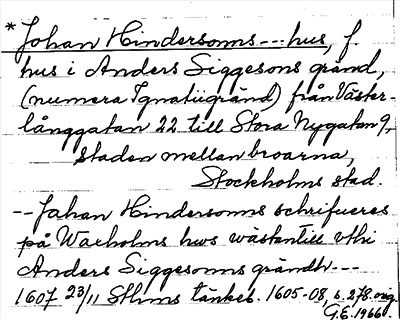 *Johan Hindersonns --- hus, f.
hus i Anders Siggesons gränd,
(numera Ignatiigränd) från Väster-
långgatan 22 till Stora Nygatan 9,
Staden mellan broarna,
Stockholms stad.
-- Johan Hindersonns schrifueres
på Warholms hws wästantill vthi
Anders Siggesonns grändh ---
1607 23/11 Sthlms tänkeb. 1605-08, s. 278. orig.
G.E. 1966.